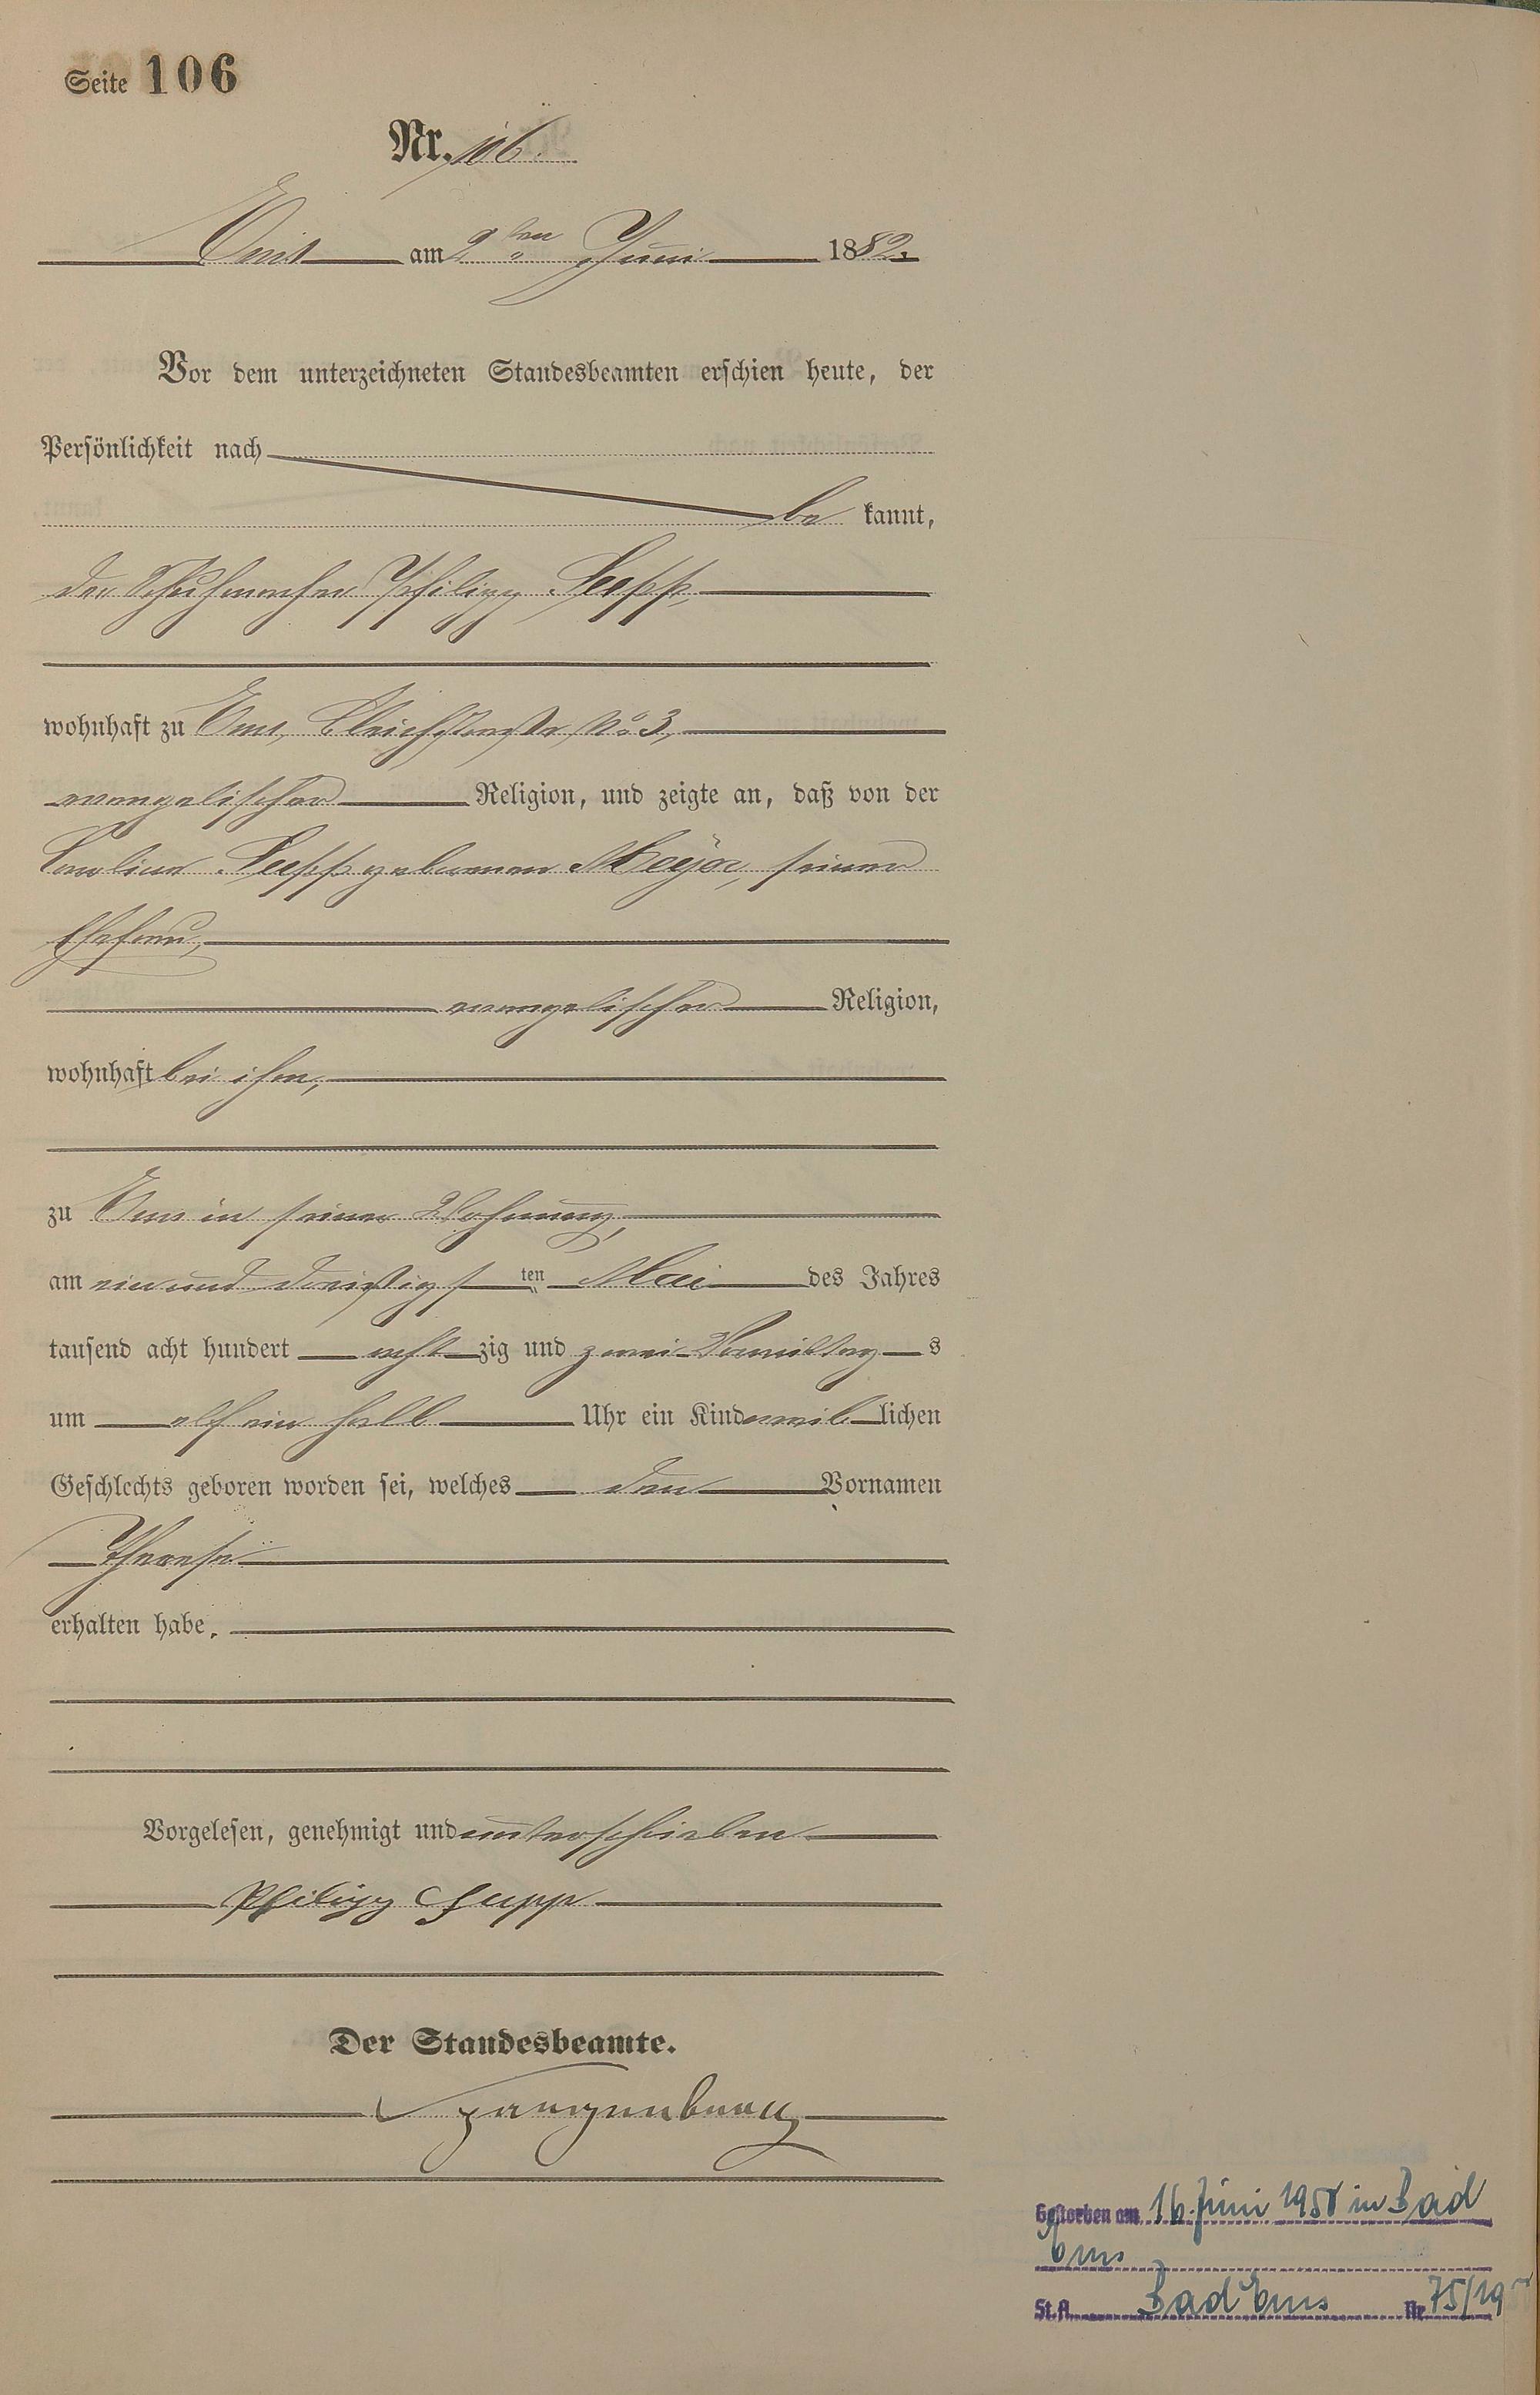 Seite 106
Nr. 106.
Ems am 2ten Juni 1882.
Vor dem unterzeichneten Standesbeamten erschien heute, der
Persönlichkeit nach
be kannt,
der Schuhmacher Philipp Supp,
wohnhaft zu Ems, Bleichstraße No 3,
evangelischer Religion, und zeigte an, daß von der
Caroline Supp geborenen Meyer, seiner
Ehefrau,
evangelischer Religion,
wohnhaft bei ihm,
zu Ems in seiner Wohnung,
am ein und dreißigsten Mai des Jahres
tausend acht hundert acht zig und zwei Vormittag s
um elf ein halb Uhr ein Kind weib lichen
Geschlechts geboren worden sei, welches den Vornamen
Therese
erhalten habe.
Vorgelesen, genehmigt und unterschrieben
Philipp Supp
Der Standesbeamte.
Spangenberg
Gestorben am 16. Juni 1958 in Bad
Ems
St.A. Bad Ems Nr 75/19